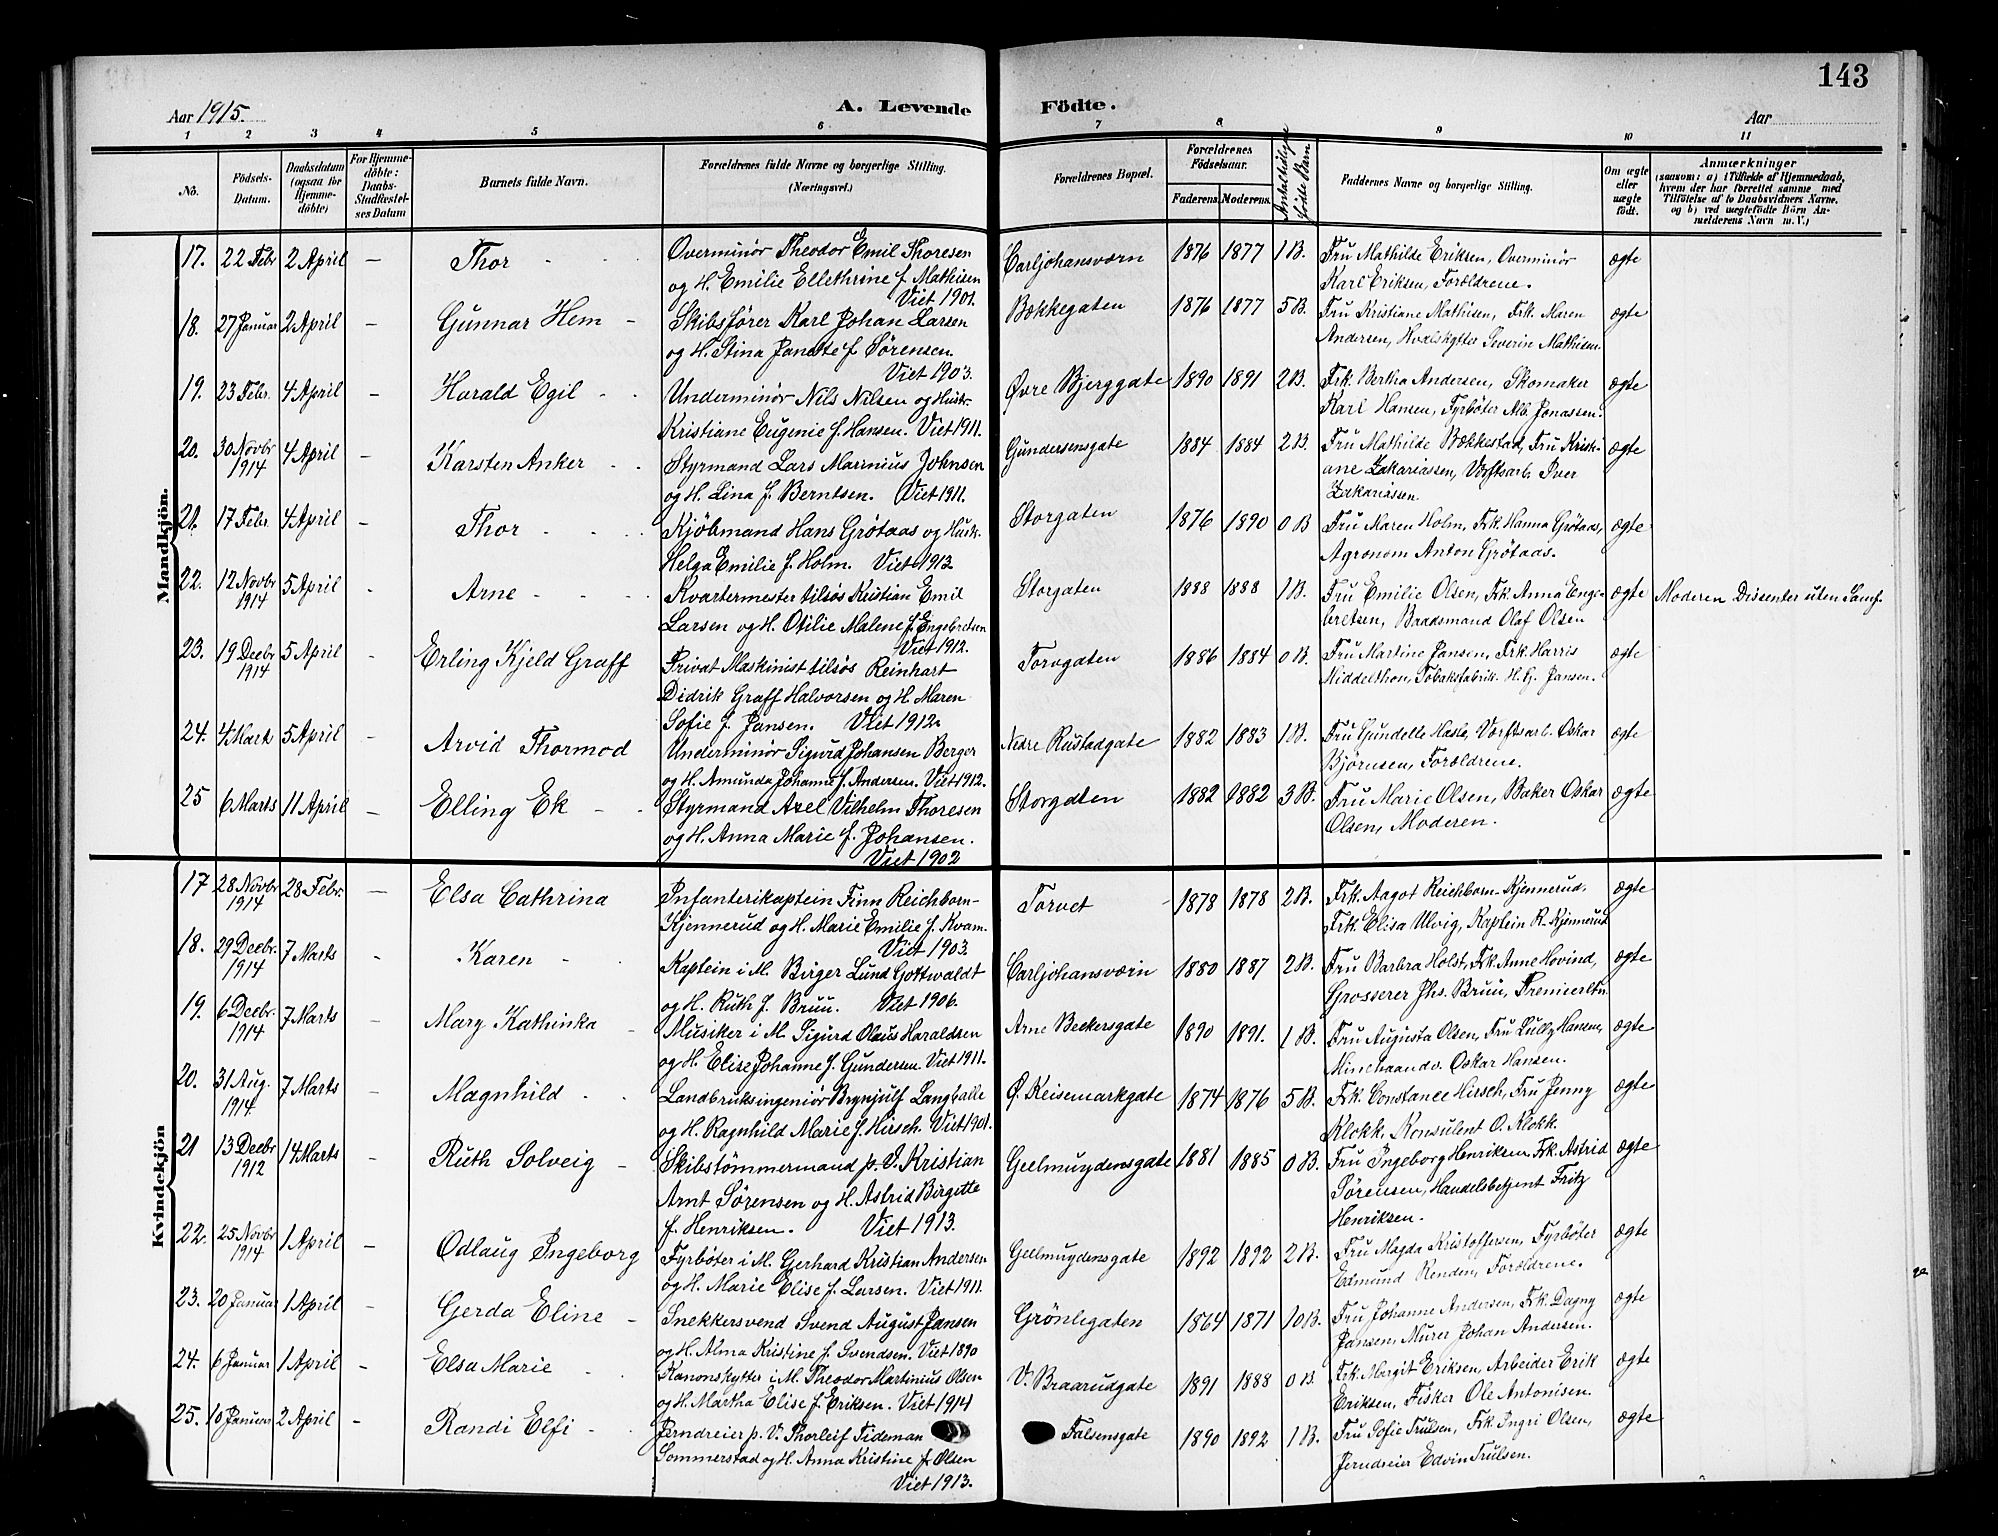 143
Aar 1915. A. Levende Födte. Aar
1 2 3 4 5 6 7 8 9 10 11
No. Födsels-Datum. Daabsdatum (ogsaa for Hjemmedöbte) For Hjemmedöbte: Daabs-Stadfæstelses Datum Barnets fulde Navn. Forældrenes fulde Navne og borgerlige Stilling. (Næringsvei.) Forældrenes Bopæl. Forældrenes Födselsaar. Faderens. Moderens. Antal tidligere födte Barn Faddernes Navne og borgerlige Stilling. Om ægte eller uægte födt. Anmærkninger (saasom: a) i Tilfælde af Hjemmedaab, hvem der har forrettet samme, med Tilföielse af to Daabsvidners Navne, og b) ved uægtefödte Börn Anmelderens Navn m. V.)
Mandkjön.
17. 22 Febr 2 April — Thor Overminör Theodor Emil Thoresen Carljohansværn 1876 1877 1 B. Fru Mathilde Eriksen, Overminör ægte
og H. Emilie Ellethrine f. Mathisen Karl Eriksen, Forældrene.
Viet 1901.
18. 27 Januar 2 April — Gunnar Hem Skibsfører Karl Johan Larsen Bækkegaten 1876 1877 5 B. Fru Kristiane Mathisen, Frk. Maren ægte
og H. Stina Janette f. Sørensen. Andersen, Hvalskytter Severin Mathisen.
Viet 1903.
19. 23 Febr. 4 April — Harald Egil Underminör Nils Nilsen og Hustr. Øvre Bjerggate 1890 1891 2 B. Frk. Bertha Andersen, Skomaker ægte
Kristiane Eugenie f. Hansen. Viet 1911. Karl Hansen, Fyrbøter Alb. Jonassen.
20. 30 Novbr 1914 4 April — Karsten Anker Styrmand Lars Marinius Johnsen Gundersensgate 1884 1884 2 B Fru Mathilde Bækkestad, Fru Kristi- ægte
og H. Lina f. Berntsen. Viet 1911. ane Zakariassen, Værftsarb. Iver
Zakariassen
21. 17 Febr. 4 April — Thor Kjöbmand Hans Grötaas og Husk. Storgaten 1876 1890 0 B Fru Maren Holm, Frk. Hanna Grötaas, ægte
Helga Emilie f. Holm. Viet 1912 Agronom Anton Grötaas.
22. 12 Novbr 1914 5 April Arne Kvartermester tilsös Kristian Emil Storgaten 1888 1888 1 B. Fru Emilie Olsen, Frk. Anna Enge- ægte Moderen Dissenter uten Samf.
Larsen og H. Otilie Malene f. Engebretsen bretsen, Baadsmand Olaf Olsen
Viet 1912.
23. 19 Decbr 1914 5 April Erling Kjeld Graff Privat Maskinist tilsös Reinhart Torvgaten 1886 1884 0 B. Fru Martine Jansen, Frk Harris ægte
Didrik Graff Halvorsen og H. Maren Middelthon, Tobaksfabrik. H. G. Jansen.
Sofie f. Jansen. Viet 1912.
24. 4 Mart 5 April — Arvid Thormod Underminör Sigurd Johansen Berger Nedre Rustadgate 1882 1883 1 B. Fru Gundelle Hasle, Værftsarb. Oskar ægte
og H. Amunda Johanne f. Andersen. Viet 1912. Bjørnsen, Forældrene.
25 6 Marts 11 April — Elling Ek Styrmand Axel Vilhelm Thoresen Storgaten 1882 1882 3 B. Fru Marie Olsen, Baker Oskar ægte
og H. Anna Marie f. Johansen. Olsen, Moderen.
Viet 1902
Kvindekjön
17 28 Novbr 1914 28 Febr. — Elsa Cathrina Infanterikaptein Finn Reichborn- Torvet 1878 1878 2 B. Frk. Aagot Reichborn-Kjennerud, ægte
Kjennerud og H. Marie Emilie f. Kvam. Frk. Elisa Ulvig, Kaptein R-Kjennerud
Viet 1903.
18. 29 Decbr. 1914 7 Marts Karen Kaptein i M. Birger Lund Gottwaldt Carljohansværn 1880 1887 2 B. Fru Barbra Holst, Frk. Anne Hovind, ægte
og H. Ruth f. Bruu. Viet 1906. Grosserer Jhs. Bruu, Premierltn.
19. 6 Decbr. 1914 7 Marts — Mary Kathinka Musiker i M. Sigurd Olaus Haraldsen Arne Beckersgate 1890 1891. 1 B. Fru Augusta Olsen, Fru Lully Hansen, ægte
og H. Elise Johanne f. Gundersen. Viet 1911. Minehaandv. Oskar Hansen.
20. 31 Aug. 1914 7 Marts — Magnhild Landbruksingeniör Brynjulf Langballe Ø. Keisemarkgate 1874 1876 5 B. Frk. Constance Hirsch, Fru Jenny ægte
og H. Ragnhild Marie f. Hirsch. Viet 1901. Klokk, Konsulent O. Klokk.
21 13 Decbr 1912 14 Marts — Ruth Solveig Skibstömmermand p. V. Kristian Geelmuydensgate 1881 1885 0 B. Fru Ingeborg Henriksen, Frk. Astrid ægte
Arnt Sørensen og H. Astrid Birgitte Sørensen, Handelsbetjent Fritz
f. Henriksen. Viet 1913. Henriksen.
22. 25 Novbr 1914 1 April — Odlaug Ingeborg Fyrbøter i M. Gerhard Kristian Andersen Geelmuydensgate 1892 1892 2 B. Fru Magda Kristoffersen, Fyrbøter ægte
og H. Marie Elise f. Larsen. Viet 1911. Edmund Renden, Forældrene.
23. 20 Januar 1 April — Gerda Eline Snekkersvend Svend August Jansen Grönligaten 1864 1871 10 B. Fru Johanne Andersen, Frk. Dagny ægte
og H. Alma Kristine f. Svendsen. Viet 1890 Jansen, Murer Johan Andersen.
24. 6 Januar 1 April — Elsa Marie Kanonskytter i M. Theodor Martinius Olsen V. Braarudgate 1891 1888 0 B Frk. Margit Eriksen, Arbeider Erik ægte
og H. Martha Elise f. Eriksen. Viet 1914 Eriksen, Fisker Ole Antonisen.
25. 10 Januar 2 April — Randi Elfi Jerndreier p. V. Thorleif Tideman Falsensgate 1890 1892 1 B. Fru Sofie Trulsen, Frk. Ingri Olsen, ægte
Sommerstad og H. Anna Kristine f. Olsen Jerndreier Edvin Trulsen.
Viet 1913.